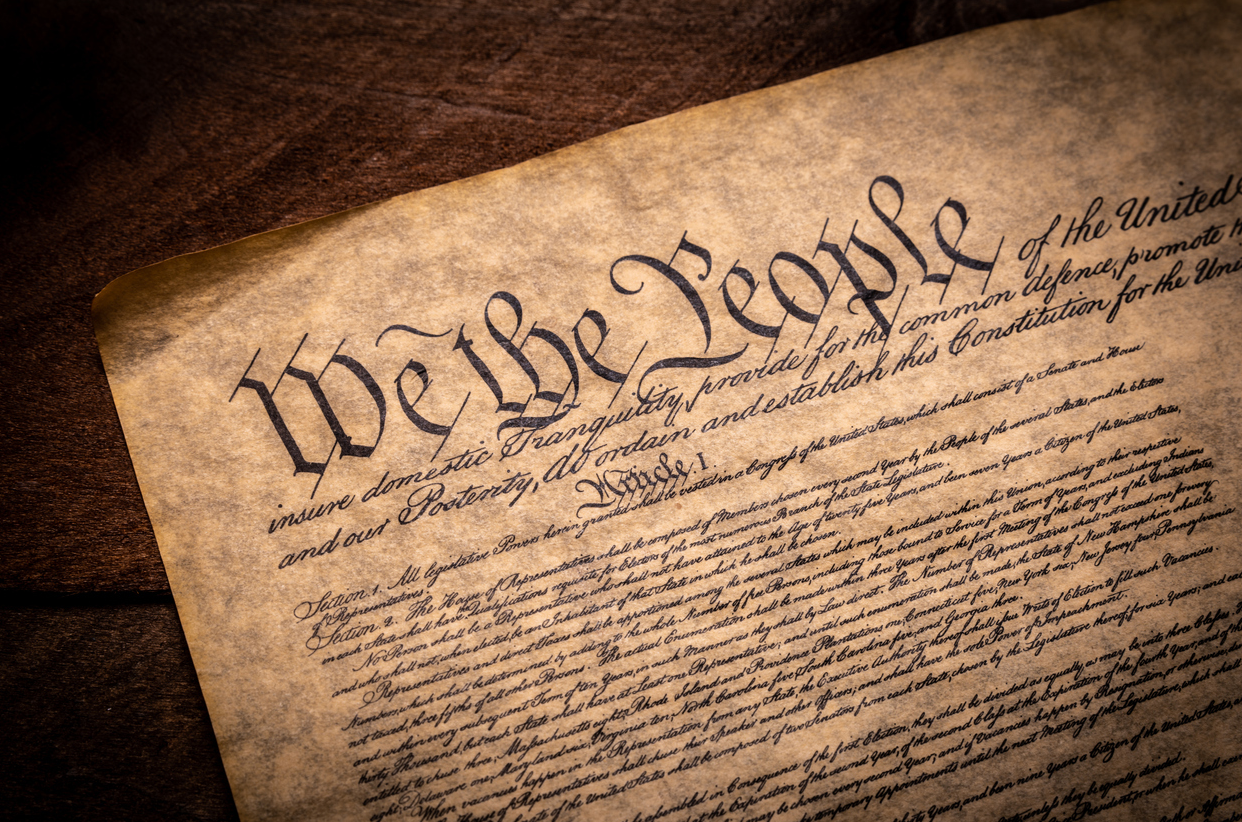 We the People of the United
insure domestic Tranquility, provide for the common defence, promote
and our Posterity, do ordain and establish this Constitution for the Uni
Article I.
Section 1. All legislative Powers herein granted shall be vested in a Congress of the United States, which shall consist of a Senate and House
of Representatives.
Section 2. The House of Representatives shall be composed of Members chosen every second Year by the People of the several States, and the Electors
in each State shall have Qualifications requisite for Electors of the most numerous Branch of the State Legislature.
No Person shall be a Representative who shall not have attained to the Age of twenty five Years, and been seven Years a Citizen of the United States,
and who shall not, when elected, be an Inhabitant of that State in which he shall be chosen.
Representatives and direct Taxes shall be apportioned among the several States which may be included within this Union, according to their respective
Numbers, which shall be determined by adding to the whole Number of free Persons, including those bound to Service for a Term of Years, and excluding Indians
not taxed, three fifths of all other Persons. The actual Enumeration shall be made within three Years after the first Meeting of the Congress of the United States,
and within every subsequent Term of ten Years, in such Manner as they shall by Law direct. The Number of Representatives shall not exceed one for every
thirty Thousand, but each State shall have at Least one Representative; and until such enumeration shall be made, the State of New Hampshire shall be
entitled to chuse three, Massachusetts eight, Rhode Island and Providence Plantations one, Connecticut five, New York six, New Jersey four, Pennsylvania
eight, Delaware one, Maryland six, Virginia ten, North Carolina five, South Carolina five, and Georgia three.
When vacancies happen in the Representation from any State, the Executive Authority thereof shall issue Writs of Election to fill such Vacancies.
House of Representatives shall chuse their Speaker and other Officers; and shall have the sole Power of Impeachment.
of the United States shall be composed of two Senators from each State, chosen by the Legislature thereof, for six Years; and
assembled in Consequence of the first Election, they shall be divided as equally as may be into three Classes.
at the Expiration of the second Year, of the second Class at the Expiration of the fourth Year, and of the
may be chosen every second Year; and if Vacancies happen by Resignation, or otherwise,
temporary Appointments until the next Meeting of the Legislature, which shall
Years, and been nine Years a Citizen of the United States,
unless they be equally divided.
President, or when he shall